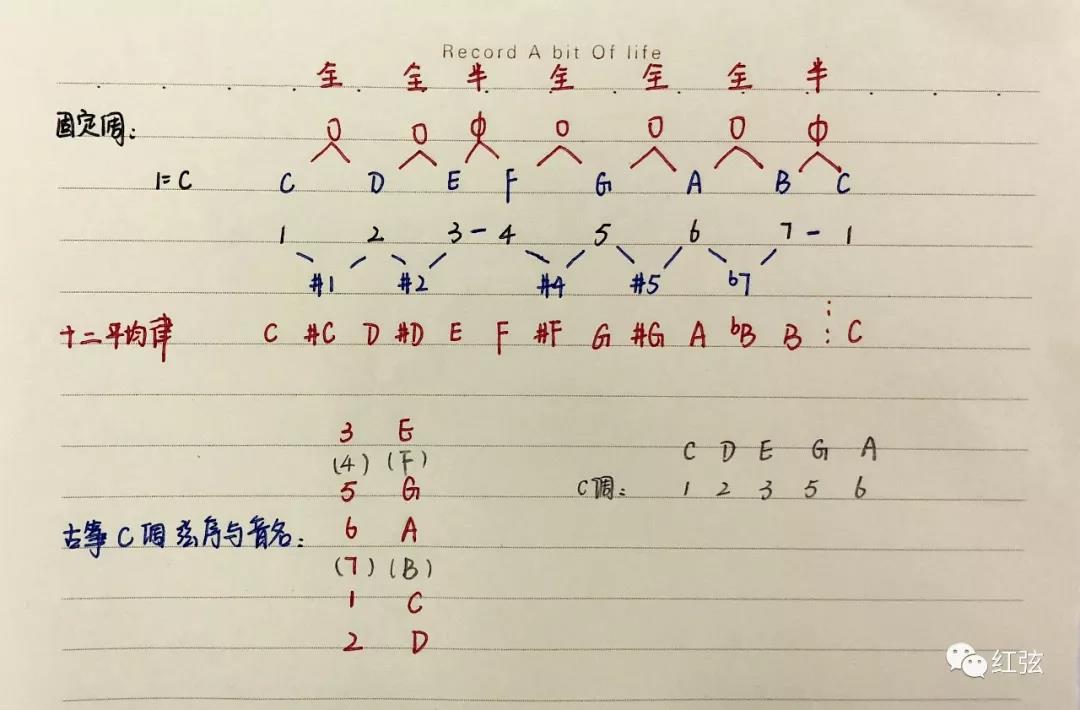 Record A bit Of life
全 全 半 全 全 全 半
固定调:
1=C C D E F G A B C
1 2 3 - 4 5 6 7 - 1
#1 #2 #4 #5 b7
十二平均律 C #C D #D E F #F G #G A bB B ⋮ C
3 E
(4) (F)
5 G
古筝C调弦序与音名:
6 A
(7) (B)
1 C
2 D
C D E G A
C调: 1 2 3 5 6
红弦